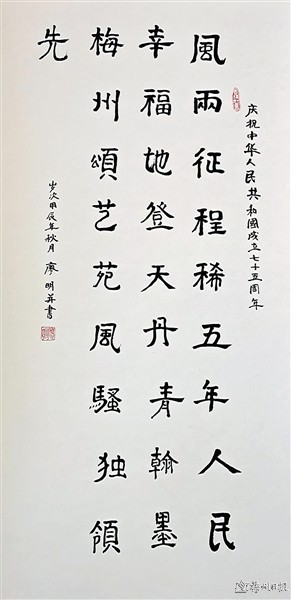 庆祝中华人民共和國成立七十五周年
風雨征程稀五年人民
幸福地登天丹青翰墨
梅州頌艺苑風騷独領
先
岁次甲辰年秋月 廖明并書
梅州日报